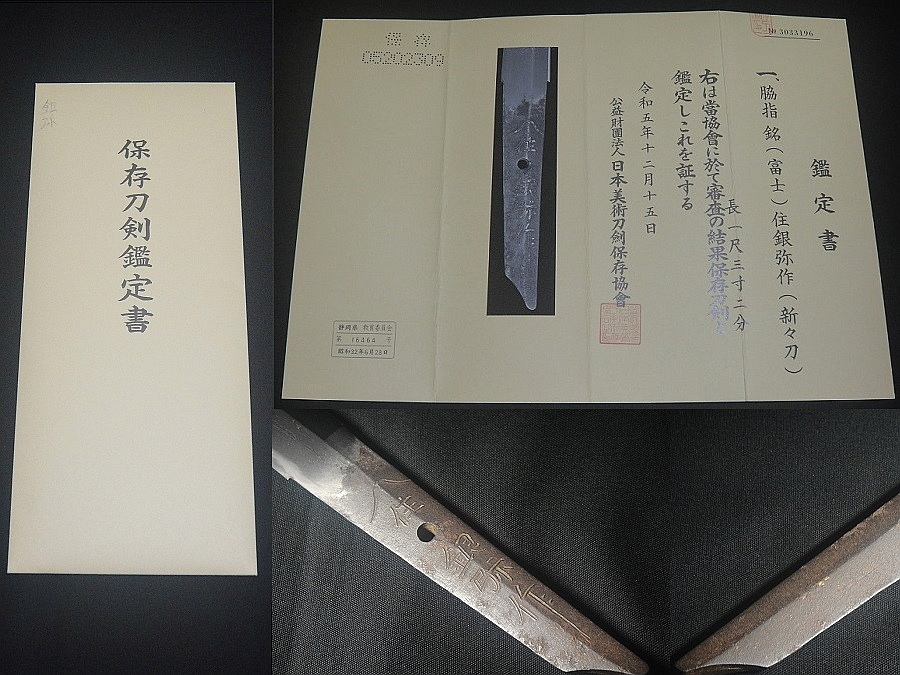 保存刀剣鑑定書
保存
05202309
№ 3033196
鑑定書
一、脇指 銘(富士)住銀弥作(新々刀)
長一尺三寸二分
右は當協會に於て審査の結果保存刀剣と
鑑定しこれを証する
令和五年十二月十五日
公益財團法人 日本美術刀劍保存協會
静岡県 教育委員会
第 16464 号
昭和32年6月28日
住銀弥作